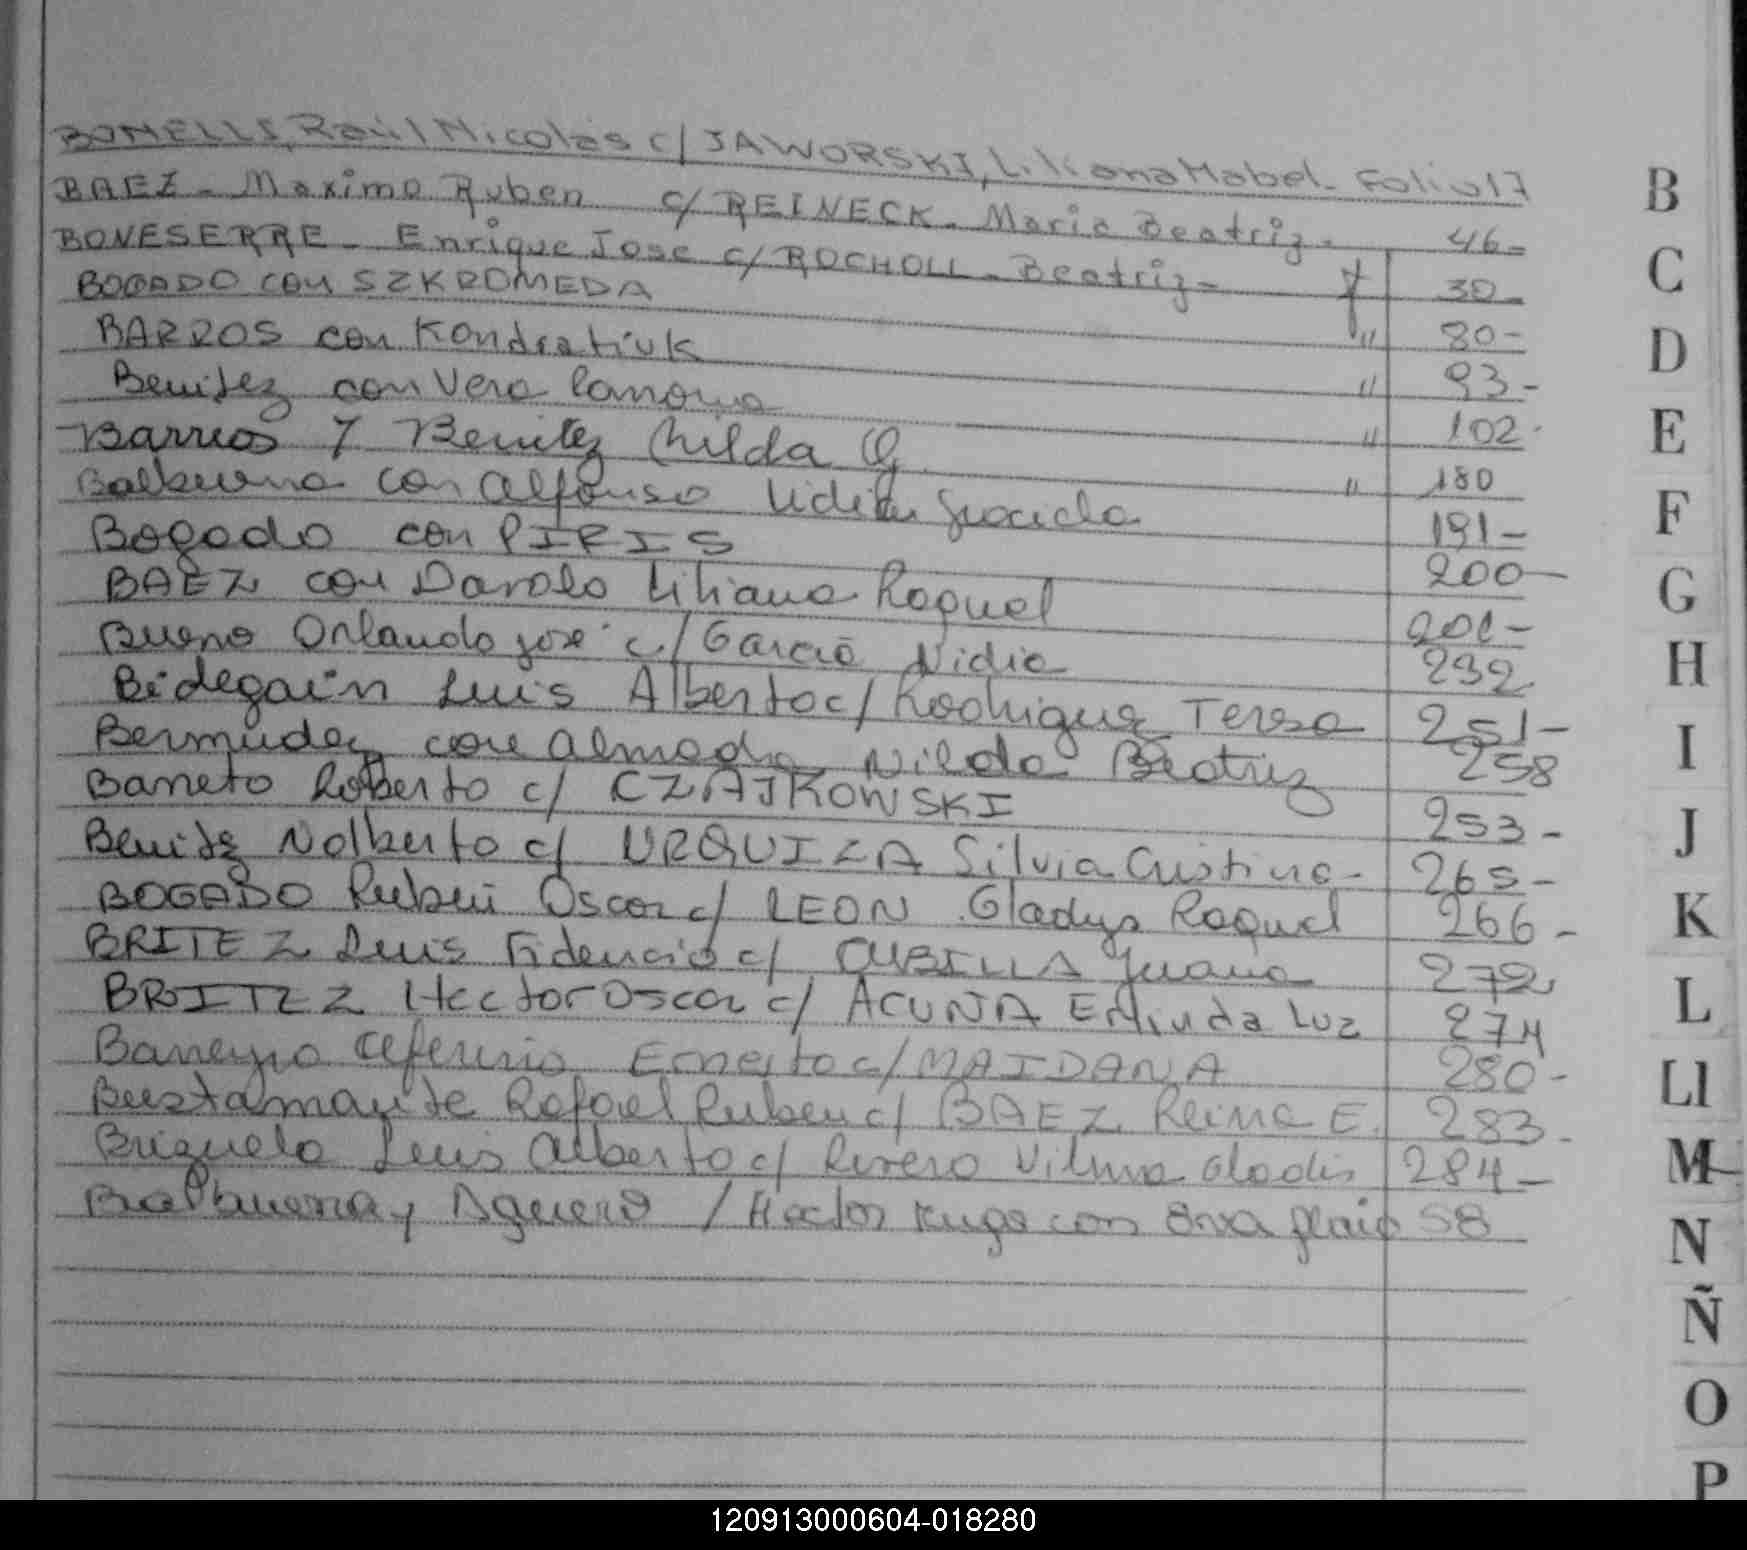 BONELLI, Raúl Nicolás c/ JAWORSKI, Liliana Mabel - Folio 17
BAEZ - Maximo Ruben c/ REINECK - Maria Beatriz - 46-
BONESERRE - Enrique Jose c/ ROCHOLL - Beatriz - F 30-
BOGADO con SZKROMEDA " 80-
BARROS con Kondratiuk " 93-
Benitez con Vera Ramona " 102
Barrios y Benitez Nilda G " 180
Balbuena con Alfonso Lidia Graciela 191-
Bogado con PIRIS 200-
BAEZ con Darolo Liliana Raquel 201-
Bueno Orlando José c/ Garcia Nidia 232
Bidegain Luis Alberto c/ Rodriguez Teresa 251-
Bermudez con Almada Nilda Beatriz 258
Barreto Roberto c/ CZAJKOWSKI 253-
Benitez Nolberto c/ URQUIZA Silvia Cristina - 265-
BOGADO Ruben Oscar c/ LEON Gladys Raquel 266-
BRITEZ Luis Fidencio c/ CUBILLA Juana 272
BRITEZ Hector Oscar c/ ACUNA Erlinda Luz 274
Barreyro Ceferino Ernesto c/ MAIDANA 280-
Bustamante Rafael Ruben c/ BAEZ Reina E. 283-
Brizuela Luis Alberto c/ Rivero Vilma Gladis 284-
Balbuena y Aguero / Hector Hugo con 58
B
C
D
E
F
G
H
I
J
K
L
Ll
M
N
Ñ
O
P
120913000604-018280